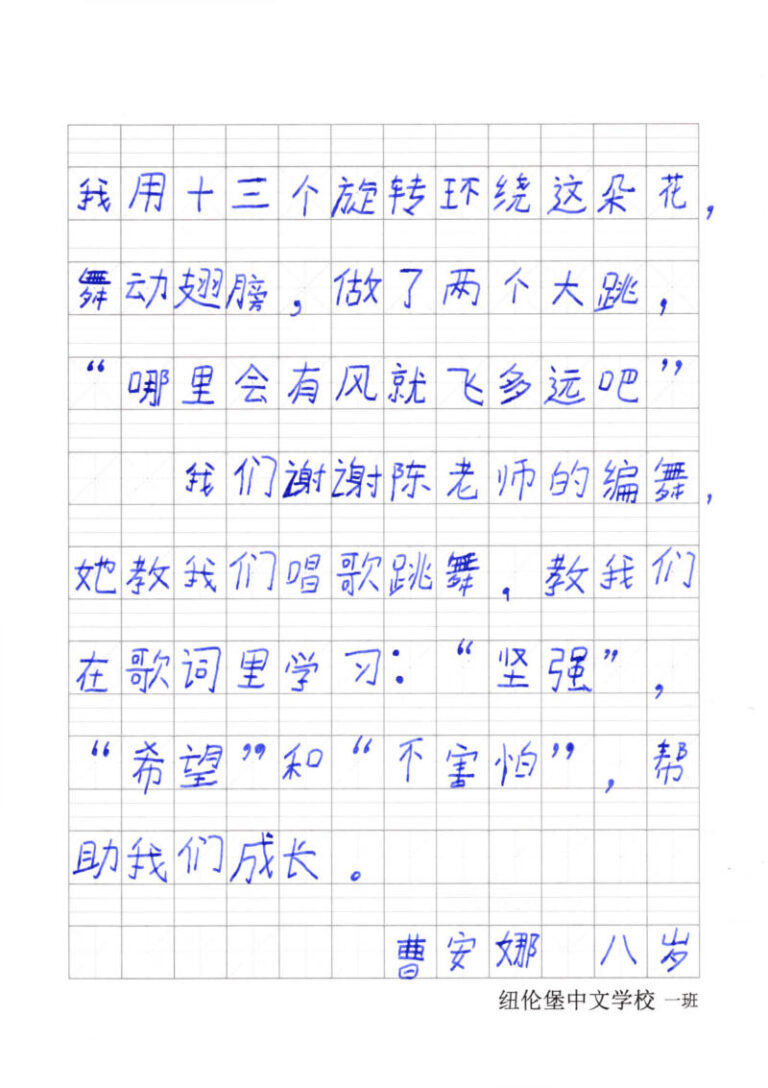 我用十三个旋转环绕这朵花，
舞动翅膀，做了两个大跳，
“哪里会有风就飞多远吧”
我们谢谢陈老师的编舞，
她教我们唱歌跳舞，教我们
在歌词里学习：“坚强”，
“希望”和“不害怕”，帮
助我们成长。
曹安娜 八岁
纽伦堡中文学校 一班